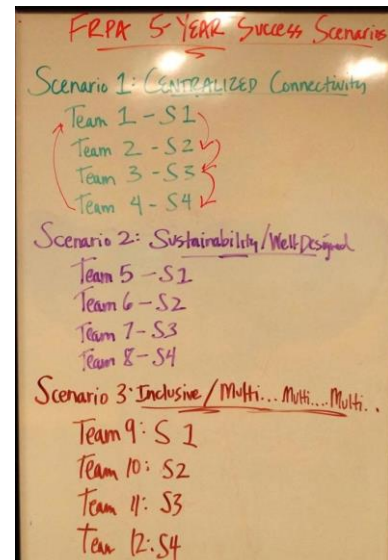 FRPA 5-YEAR Success Scenarios
Scenario 1: CENTRALIZED Connectivity
Team 1 - S1
Team 2 - S2
Team 3 - S3
Team 4 - S4
Scenario 2: Sustainability/Well Designed
Team 5 - S1
Team 6 - S2
Team 7 - S3
Team 8 - S4
Scenario 3: Inclusive/Multi...Multi...Multi..
Team 9: S1
Team 10: S2
Team 11: S3
Team 12: S4